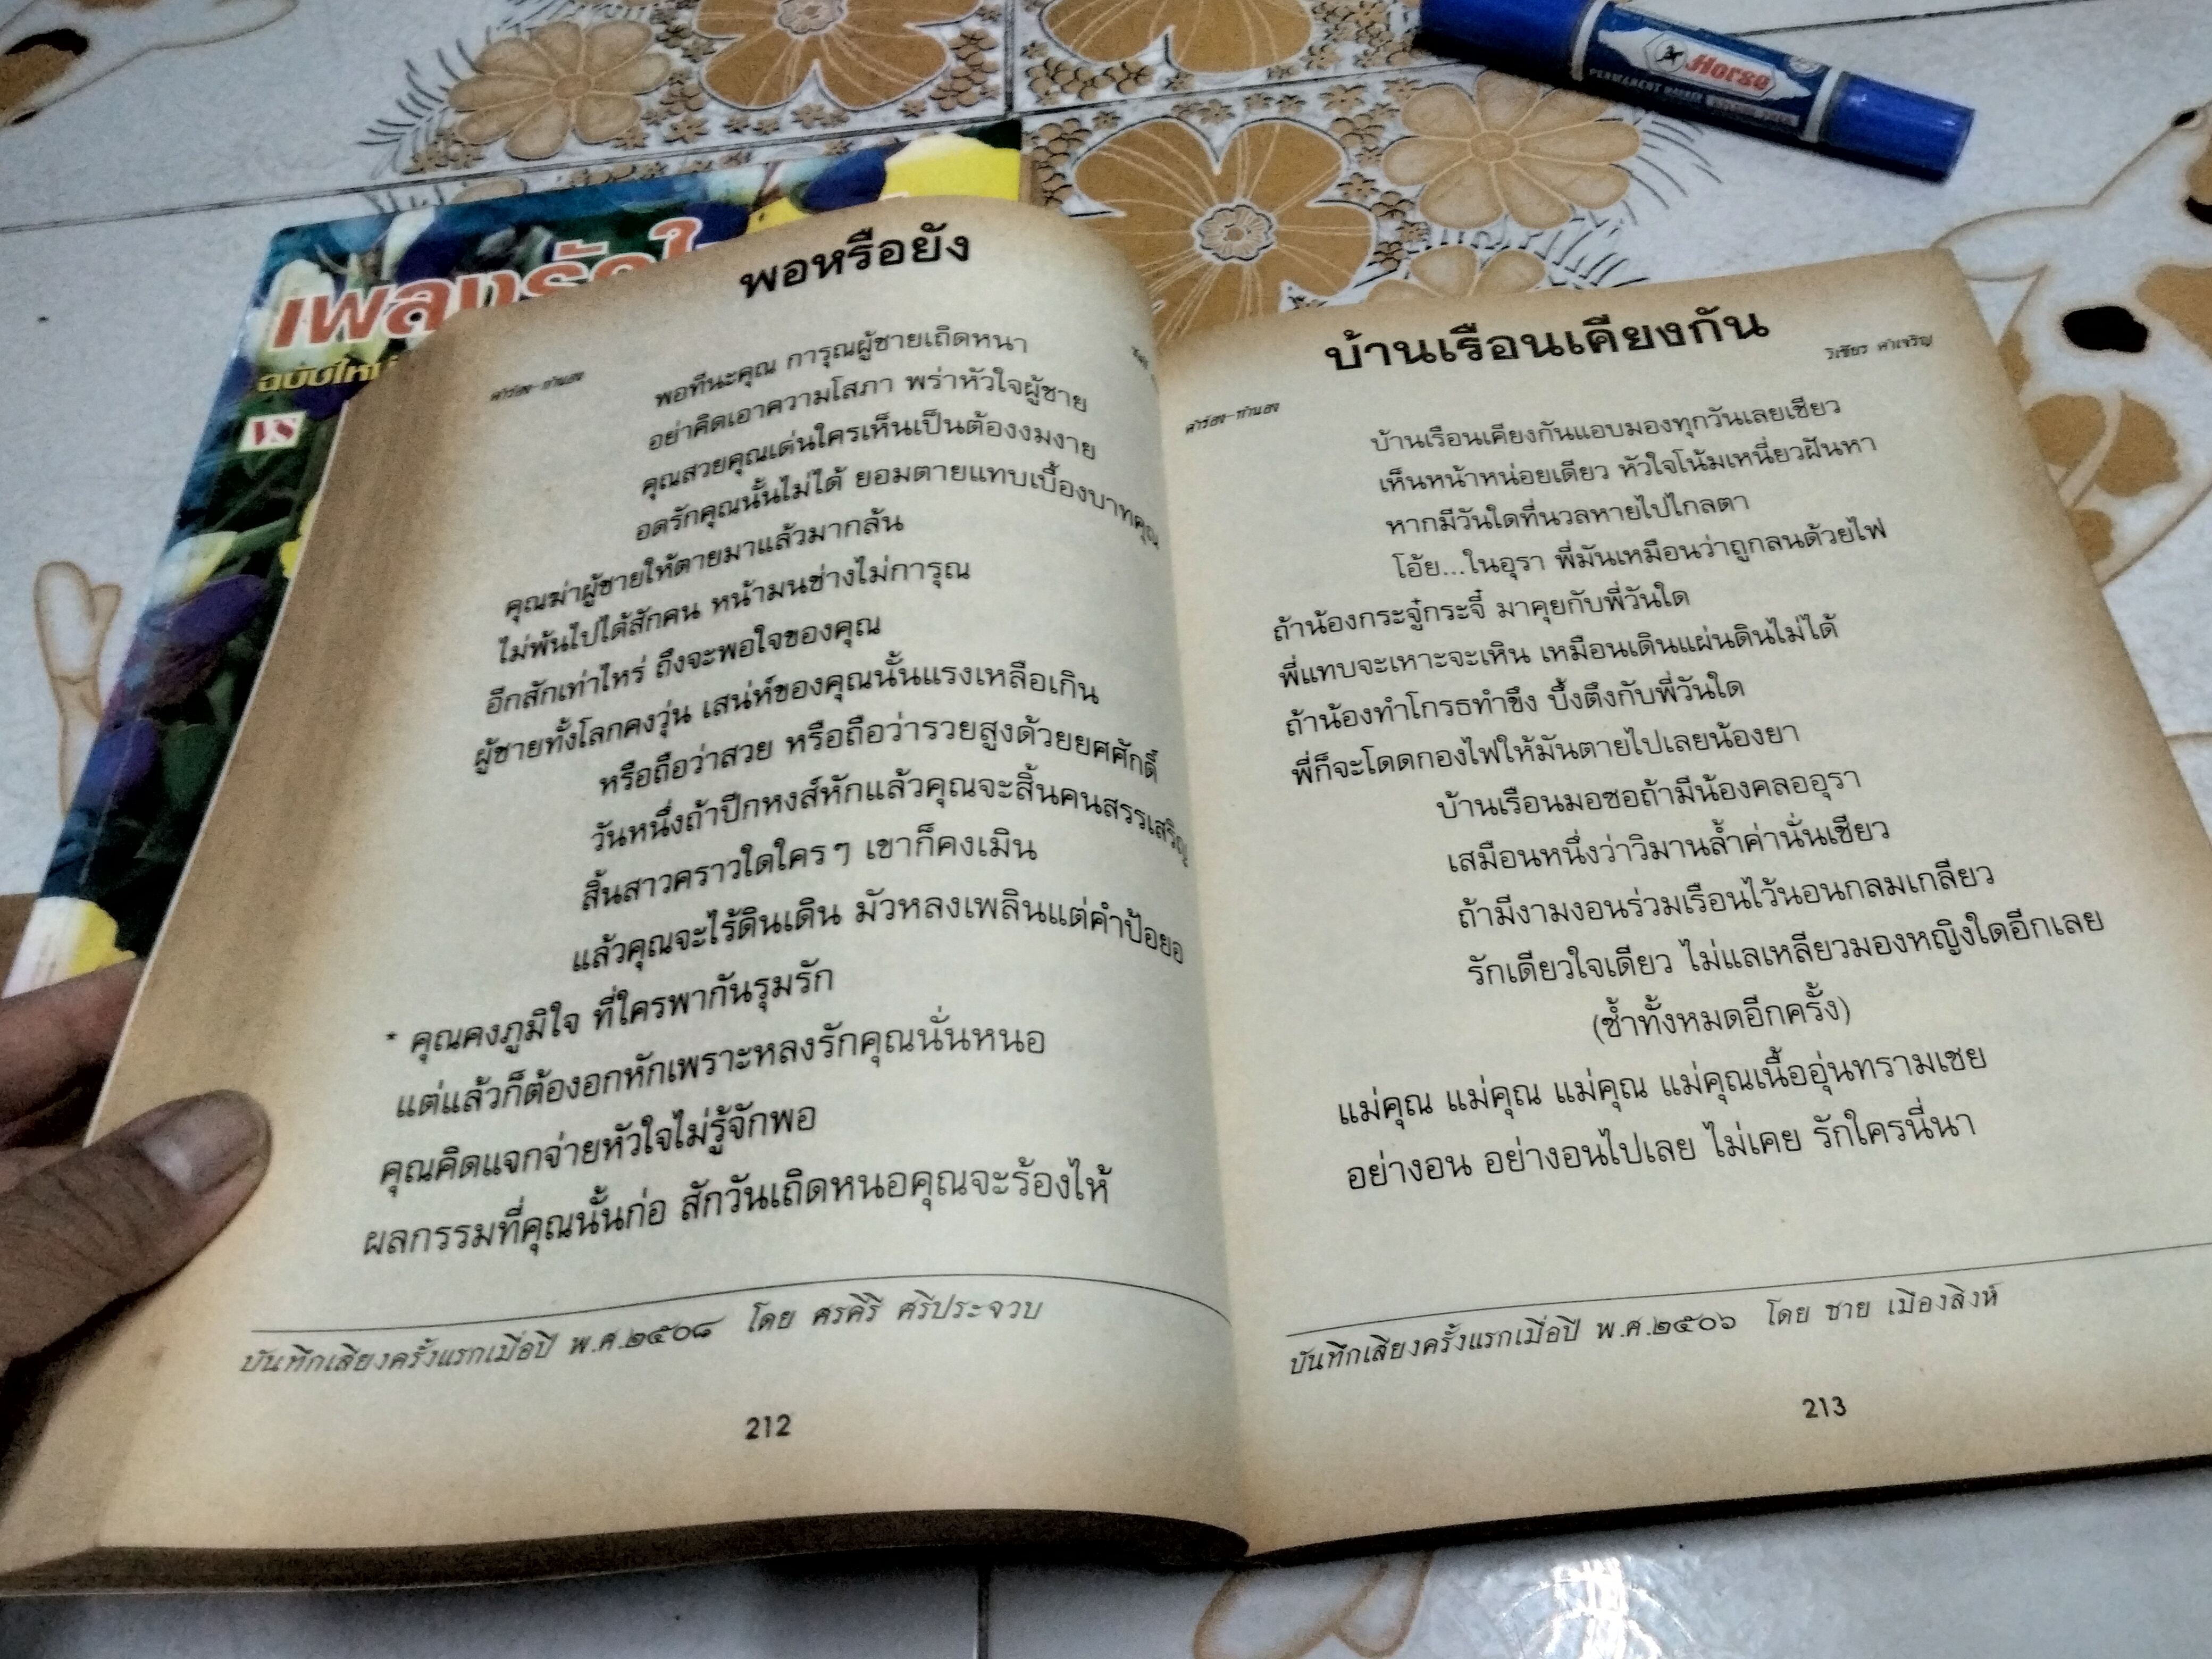 Horse
PERMANENT MARKER
ฉบับใหม่
VS
พอหรือยัง
คำร้อง-ทำนอง
พอทีนะคุณ การุณผู้ชายเถิดหนา
อย่าคิดเอาความโสภา พร่าหัวใจผู้ชาย
คุณสวยคุณเด่นใครเห็นเป็นต้องงมงาย
อดรักคุณนั้นไม่ได้ ยอมตายแทบเบื้องบาทคุณ
คุณฆ่าผู้ชายให้ตายมาแล้วมากล้น
ไม่พ้นไปได้สักคน หน้ามนช่างไม่การุณ
อีกสักเท่าไหร่ ถึงจะพอใจของคุณ
ผู้ชายทั้งโลกคงวุ่น เสน่ห์ของคุณนั้นแรงเหลือเกิน
หรือถือว่าสวย หรือถือว่ารวยสูงด้วยยศศักดิ์
วันหนึ่งถ้าปีกหงส์หักแล้วคุณจะสิ้นคนสรรเสริญ
สิ้นสาวคราวใดใครๆ เขาก็คงเมิน
แล้วคุณจะไร้ดินเดิน มัวหลงเพลินแต่คำป้อยอ
* คุณคงภูมิใจ ที่ใครพากันรุมรัก
แต่แล้วก็ต้องอกหักเพราะหลงรักคุณนั่นหนอ
คุณคิดแจกจ่ายหัวใจไม่รู้จักพอ
ผลกรรมที่คุณนั้นก่อ สักวันเถิดหนอคุณจะร้องไห้
บันทึกเสียงครั้งแรกเมื่อปี พ.ศ.๒๕๐๘ โดย ศรคิรี ศรีประจวบ
212
บ้านเรือนเคียงกัน
คำร้อง-ทำนอง
วิเชียร คำเจริญ
บ้านเรือนเคียงกันแอบมองทุกวันเลยเชียว
เห็นหน้าหน่อยเดียว หัวใจโน้มเหนี่ยวฝันหา
หากมีวันใดที่นวลหายไปไกลตา
โอ้ย...ในอุรา พี่มันเหมือนว่าถูกลนด้วยไฟ
ถ้าน้องกระจู๋กระจี๋ มาคุยกับพี่วันใด
พี่แทบจะเหาะจะเหิน เหมือนเดินแผ่นดินไม่ได้
ถ้าน้องทำโกรธทำขึง บึ้งตึงกับพี่วันใด
พี่ก็จะโดดกองไฟให้มันตายไปเลยน้องยา
บ้านเรือนมอซอถ้ามีน้องคลออุรา
เสมือนหนึ่งว่าวิมานล้ำค่านั่นเชียว
ถ้ามีงามงอนร่วมเรือนไว้นอนกลมเกลียว
รักเดียวใจเดียว ไม่แลเหลียวมองหญิงใดอีกเลย
(ซ้ำทั้งหมดอีกครั้ง)
แม่คุณ แม่คุณ แม่คุณ แม่คุณเนื้ออุ่นทรามเชย
อย่างอน อย่างอนไปเลย ไม่เคย รักใครนี่นา
บันทึกเสียงครั้งแรกเมื่อปี พ.ศ.๒๕๐๖ โดย ชาย เมืองสิงห์
213